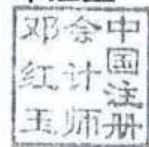 中国注册
会计师
邓红玉